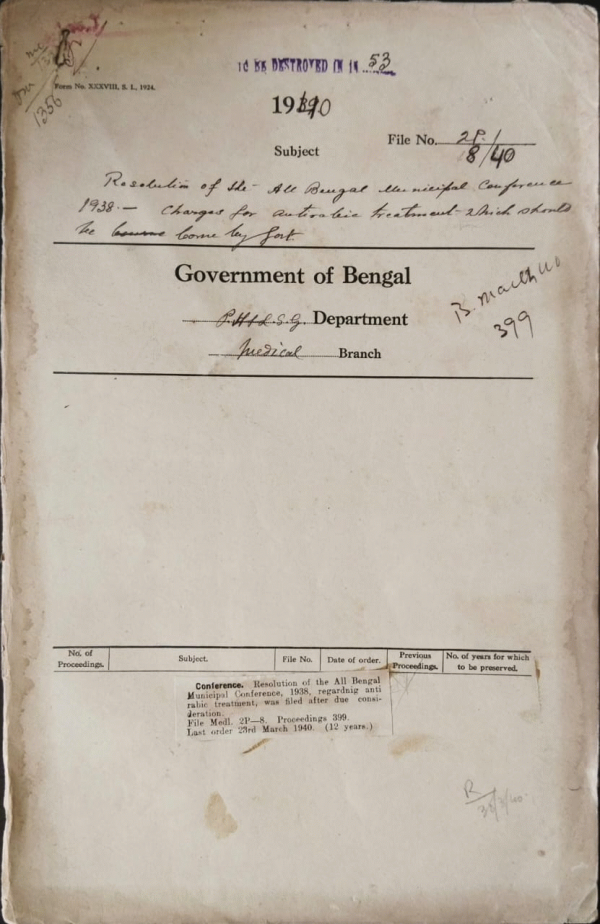 TO BE DESTROYED IN 19 53
1356
Form No. XXXVIII, S. I., 1924.
1940
File No. 2P-1
8/40
Subject
Resolution of the All Bengal Municipal Conference
1938 — Charges for antirabic treatment which should
be borne by Govt
Government of Bengal
P.H. & L.S.G. Department
Medical Branch
B. March 40
399
No. of Proceedings. Subject. File No. Date of order. Previous Proceedings. No. of years for which to be preserved.
Conference. Resolution of the All Bengal
Municipal Conference, 1938, regardnig anti
rabic treatment, was filed after due consi-
deration.
File Medl. 2P—8. Proceedings 399.
Last order 23rd March 1940. (12 years.)